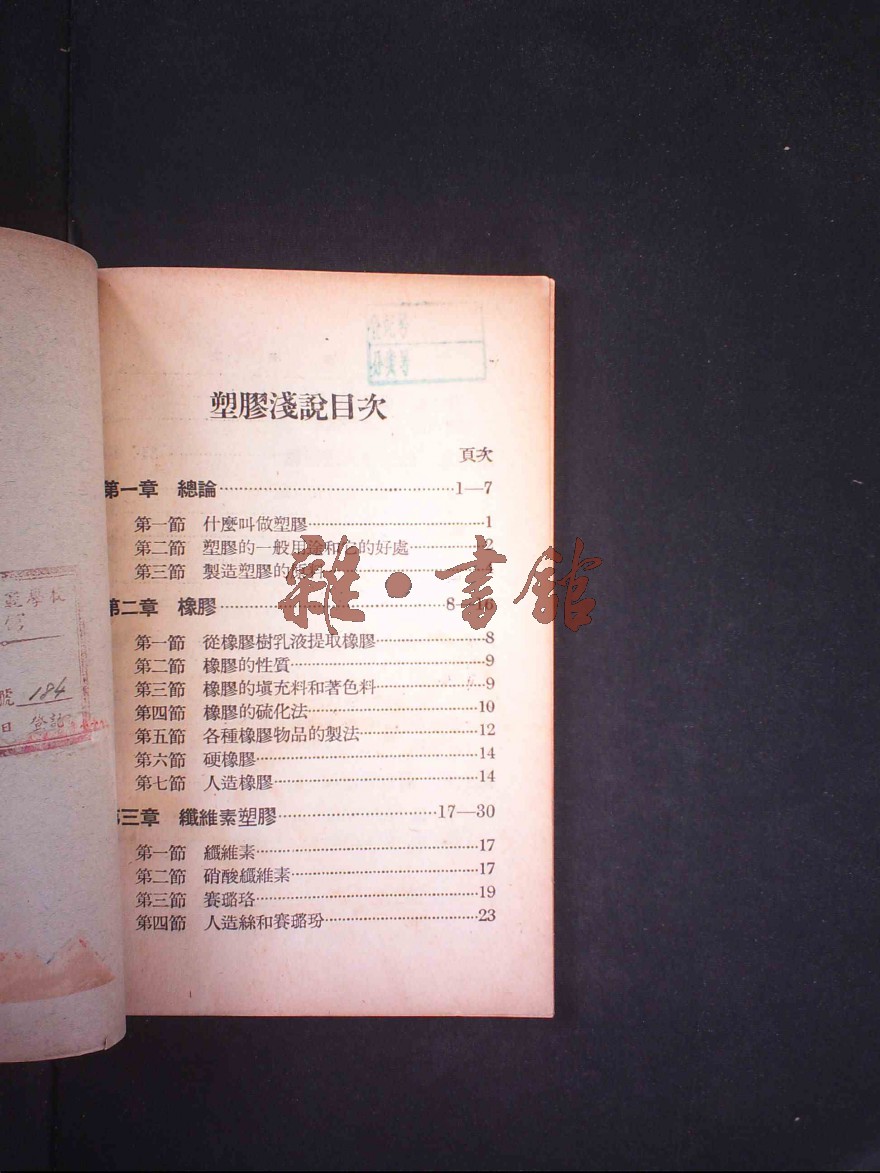 塑膠淺說目次
頁次
第一章 總論 1—7
第一節 什麼叫做塑膠 1
第二節 塑膠的一般用途和它的好處 2
第三節 製造塑膠的原料
第二章 橡膠 8—16
第一節 從橡膠樹乳液提取橡膠 8
第二節 橡膠的性質 9
第三節 橡膠的塡充料和著色料 9
第四節 橡膠的硫化法 10
第五節 各種橡膠物品的製法 12
第六節 硬橡膠 14
第七節 人造橡膠 14
第三章 纖維素塑膠 17—30
第一節 纖維素 17
第二節 硝酸纖維素 17
第三節 賽璐珞 19
第四節 人造絲和賽璐玢 23
1
雜·書館
號 184
日 登記